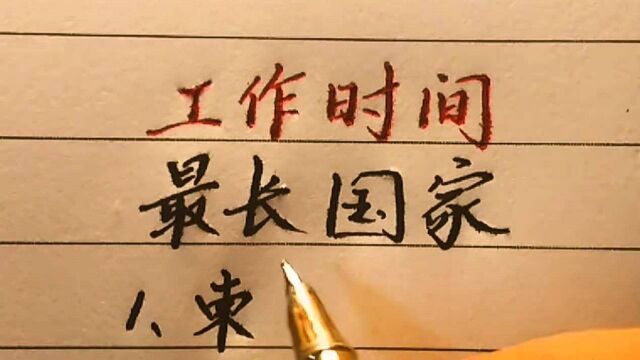 工作时间
最长国家
1、柬